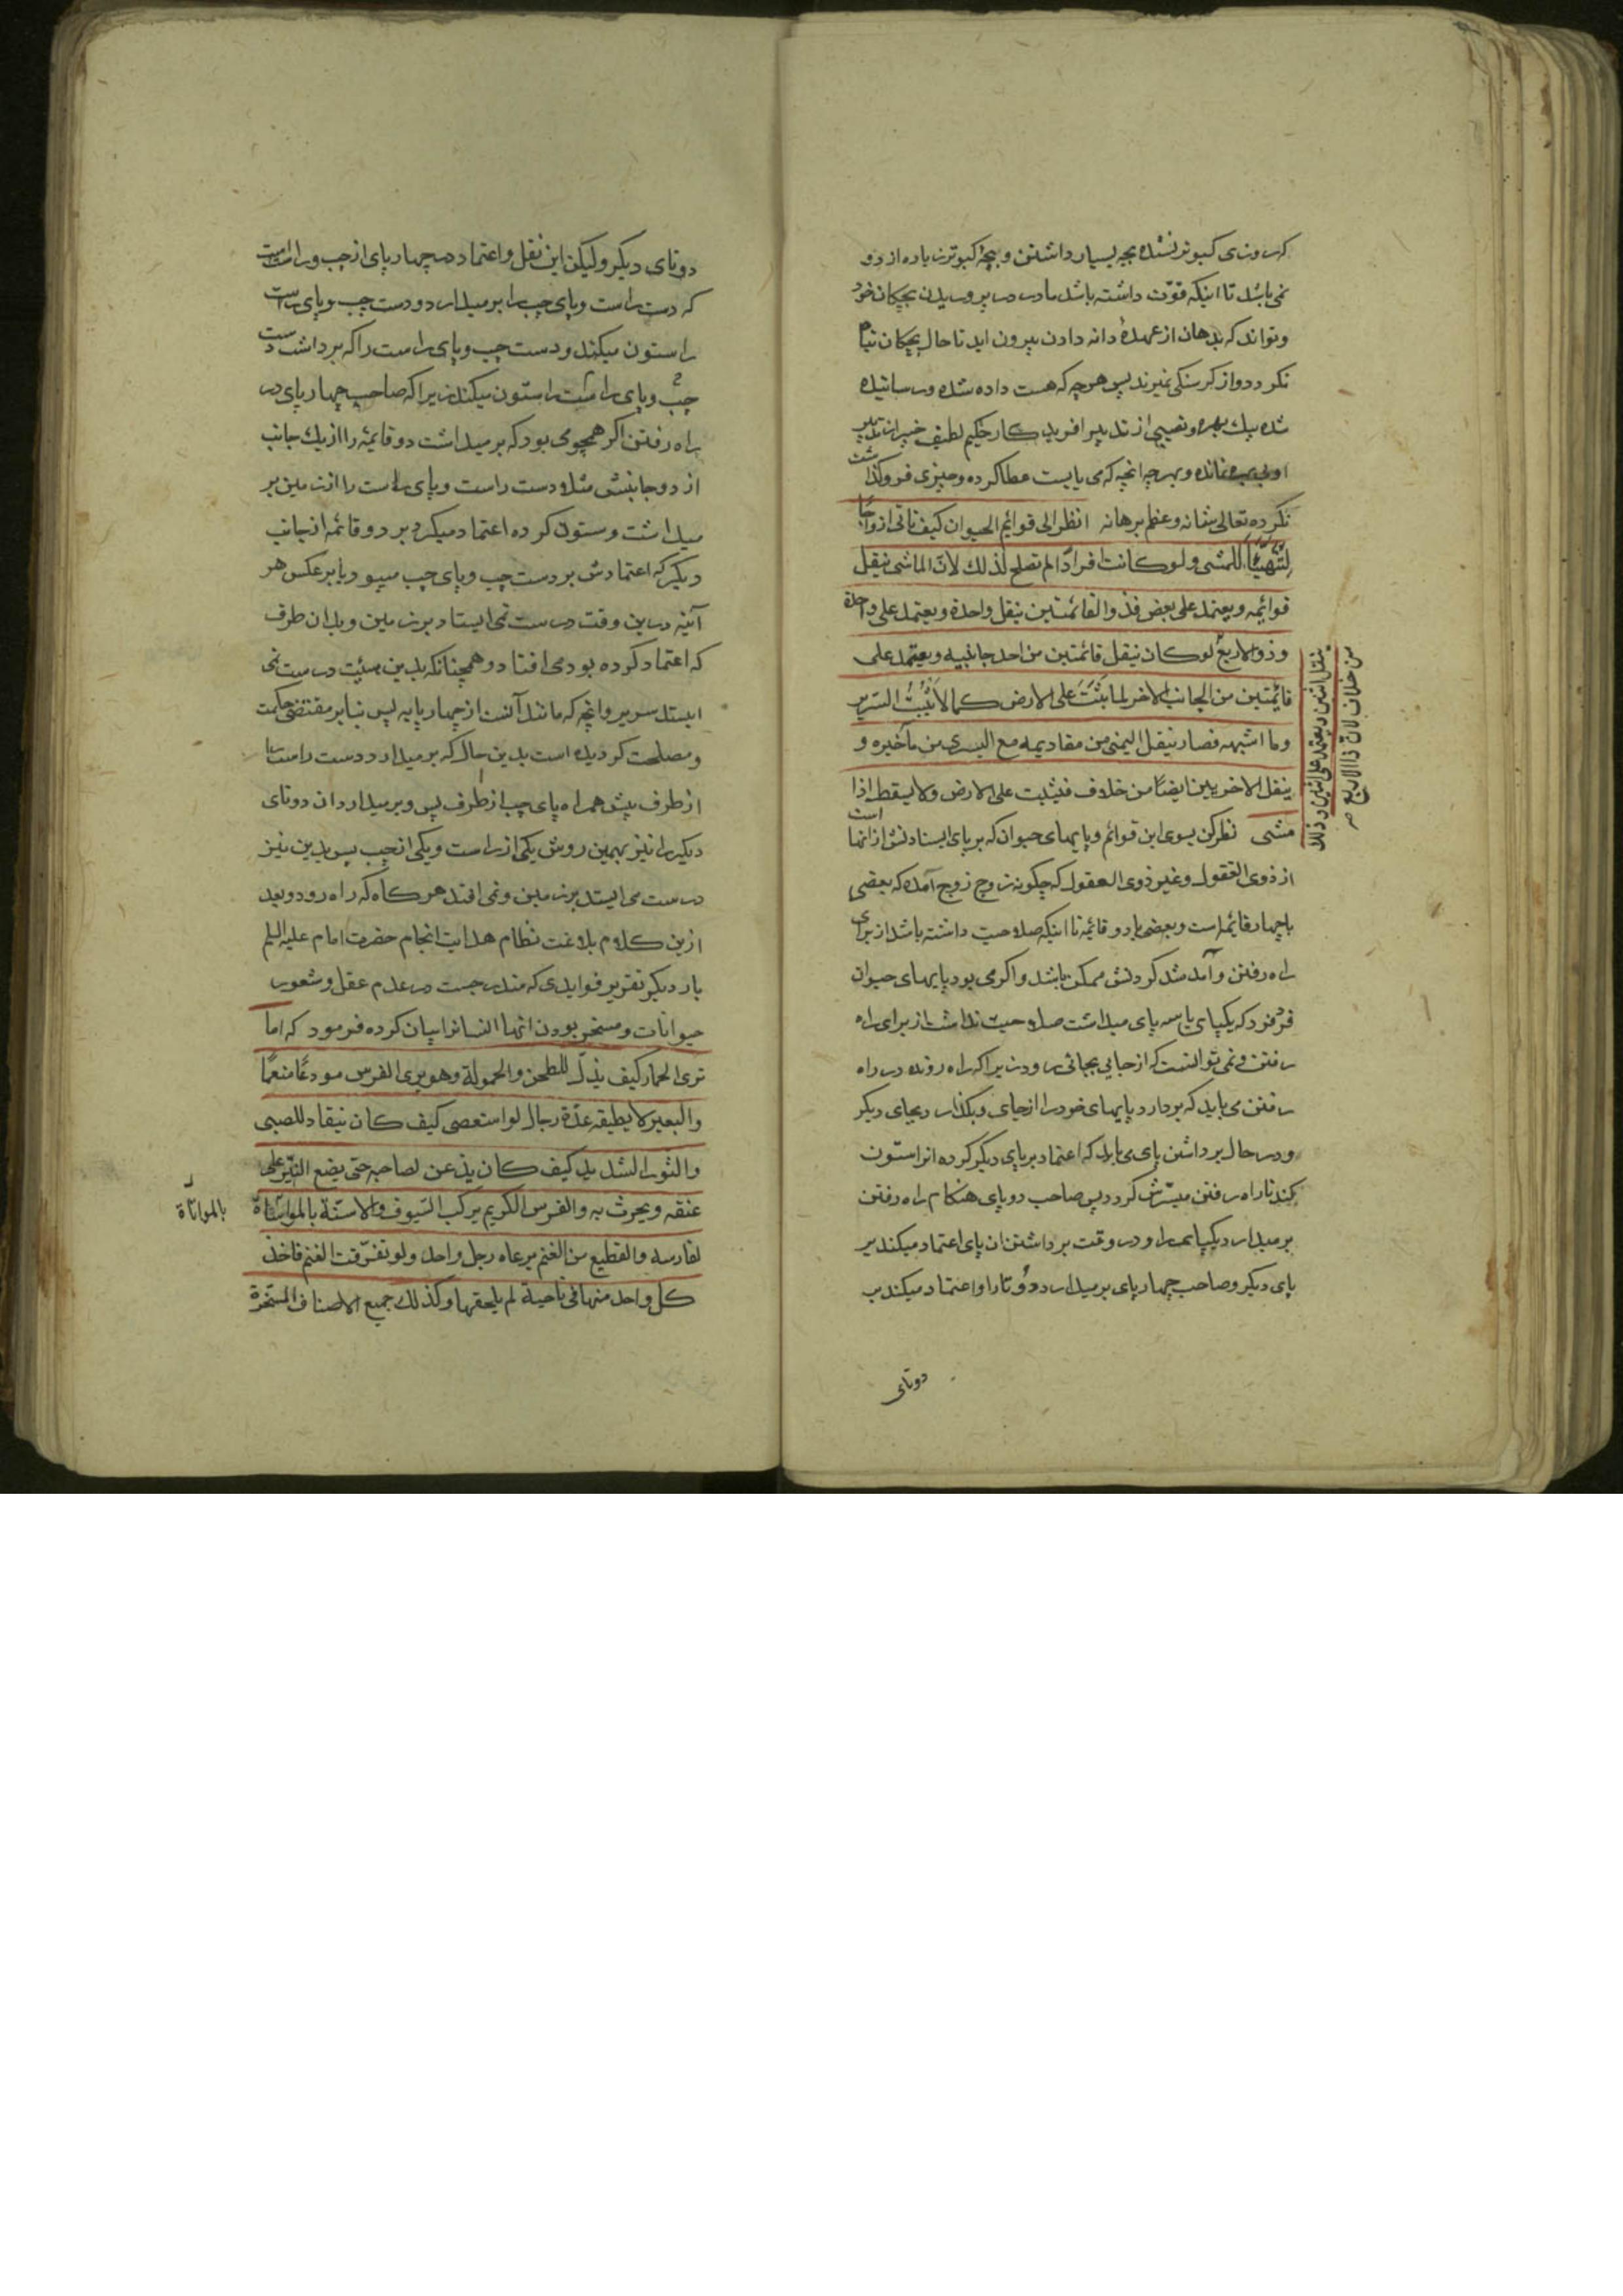 که روزی کبوتر نشده بچه بسیار داشتن و بچهٔ کبوتر زیاده از دو
نمی باشد تا اینکه قوّت داشته باشد مادر در پروریدن بچکان خود
و تواند که بدهان از عهدهٔ دانه دادن بیرون اید تا حال بچکان تباه
نکردد و از کرسنکی نمیرند پس هر چه که هست داده شده و رسانیده
شده بیک بهره و نصیبی از تدبیر افرید کار حکیم لطیف خبیر از تدبیر
او بی بهره نمانده و بهر چه انچه که می بایست عطا کرده و چیزی فروکذاشت
نکرده تعالی شانه و عظم برهانه انظر الی قوائم الحیوان کیف تاتی ازواجًا
لتتهیّأ للمشی ولو کانت افرادًا لم تصلح لذلک لانّ الماشی ینقل
قوائمه ویعتمد علی بعض فذو القائمتین ینقل واحدة ویعتمد علی واحدة
وذو الاربع لو کان ینقل قائمتین من احد جانبیه ویعتمد علی
قائمتین من الجانب الاخر لما یثبت علی الارض کما لا یثبت السریر
وما اشبهه فصار ینقل الیمنی من مقادیمه مع الیسری من مآخیره و
ینقل الاخریین ایضًا من خلاف فیثبت علی الارض ولا یسقط اذا
مشی نظر کن بسوی این قوائم و پایهای حیوان که بر پای ایستادنش از انها است
از ذوی العقول و غیر ذوی العقول که چکونه زوج زوج آمده که بعضی
با چهار قائمه است و بعضی با دو قائمه تا اینکه صلاحیت داشته باشد از برای
راه رفتن و آمد شد کردنش ممکن باشد و اکر می بود پایهای حیوان
فرد فرد که یکپای یا سه پای میداشت صلاحیت نداشت از برای راه
رفتن و نمی توانست که از جایی بجائی رود زیرا که راه رونده در راه
رفتن می باید که بردارد پایهای خود را از جای و بکذارد بجای دیکر
و در حال برداشتن پای می باید که اعتماد بر پای دیکر کرده انرا ستون
کند تا راه رفتن میسّرش کردد پس صاحب دو پای هنکام راه رفتن
بر میدارد یکپای را و در وقت برداشتن ان پای اعتماد میکند بر
پای دیکر و صاحب چهار پای بر میدارد دو تا را و اعتماد میکند ب
دوتای
ینقل اثنین ویعتمد علی اثنین وذلک
من خلاف لانّ ذا الاربع
دوتای دیکر ولیکن این نقل و اعتماد در چهار پای از چپ و راست است
که دست راست و پای چپ را بر میدارد و دست چپ و پای راست
را ستون میکند و دست چپ و پای راست را که برداشت دست
چپ و پای راست را ستون میکند زیرا که صاحب چهار پای در
راه رفتن اکر همچو می بود که بر میداشت دو قائمه را از یک جانب
از دو جانبش مثلا دست راست و پای راست را از زمین بر
میداشت و ستون کرده اعتماد میکرد بر دو قائمه از جانب
دیکر که اعتمادش بر دست چپ و پای چپ میبود یا بر عکس هر
آئینه در این وقت درست نمی ایستاد بر زمین و بدان طرف
که اعتماد کرده بود می افتاد و همچنانکه بدین هیئت درست نمی
ایستد سریر و انچه که مانند آنست از چهار پایه پس بنابر مقتضی حکمت
و مصلحت کردیده است بدین حال که بر میدارد دست راست را
از طرف پیش همراه پای چپ از طرف پس و بر میدارد ان دوتای
دیکر را نیز بهمین روش یکی از راست و یکی از چپ پس بدین نیز
درست می ایستد بر زمین و نمی افتد هر کاه که راه رود و بعد
ازین کلام بلاغت نظام هدایت انجام حضرت امام علیه السلم
بار دیکر تقریر فوایدی که مندرجست در عدم عقل و شعور
حیوانات و مسخر بودن انها انسانرا بیان کرده فرمود که اما
تری الحمار کیف یذلّ للطحن والحمولة وهو یری الفرس مودعًا منعمًا
والبعیر لا یطیقه عدّة رجال لو استعصی کیف کان ینقاد للصبی
والثور الشدید کیف کان یذعن لصاحبه حتی یضع النیر علی
عنقه ویحرث به والفرس الکریم یرکب السیوف والاسنّة بالمواساة
بالمواتاة
لفارسه والقطیع من الغنم یرعاه رجل واحد ولو تفرّقت الغنم فاخذ
کل واحد منها فی ناحیة لم یلحقها وکذلک جمیع الاصناف المسخّرة